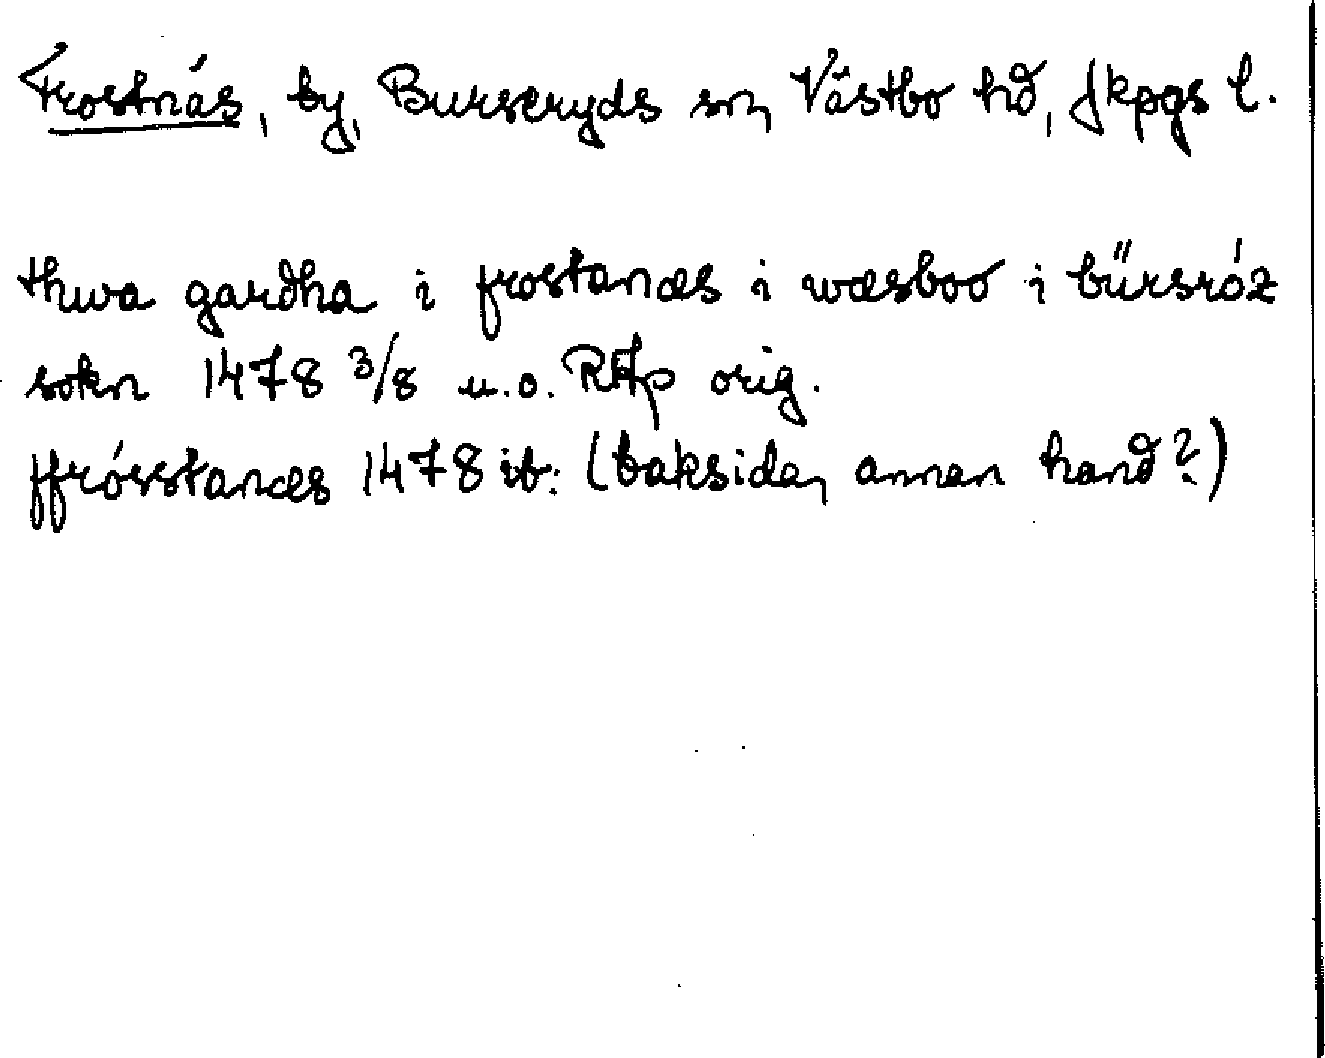 Frostnäs, by, Burseryds sn, Västbo hd, Jkpgs l.
thwa gardha i frostanæs i wæsboo i bűrsróz
sokn 1478 3/8 u.o. RAp orig.
ffrósstanæs 1478 ib. (baksida, annan hand?)